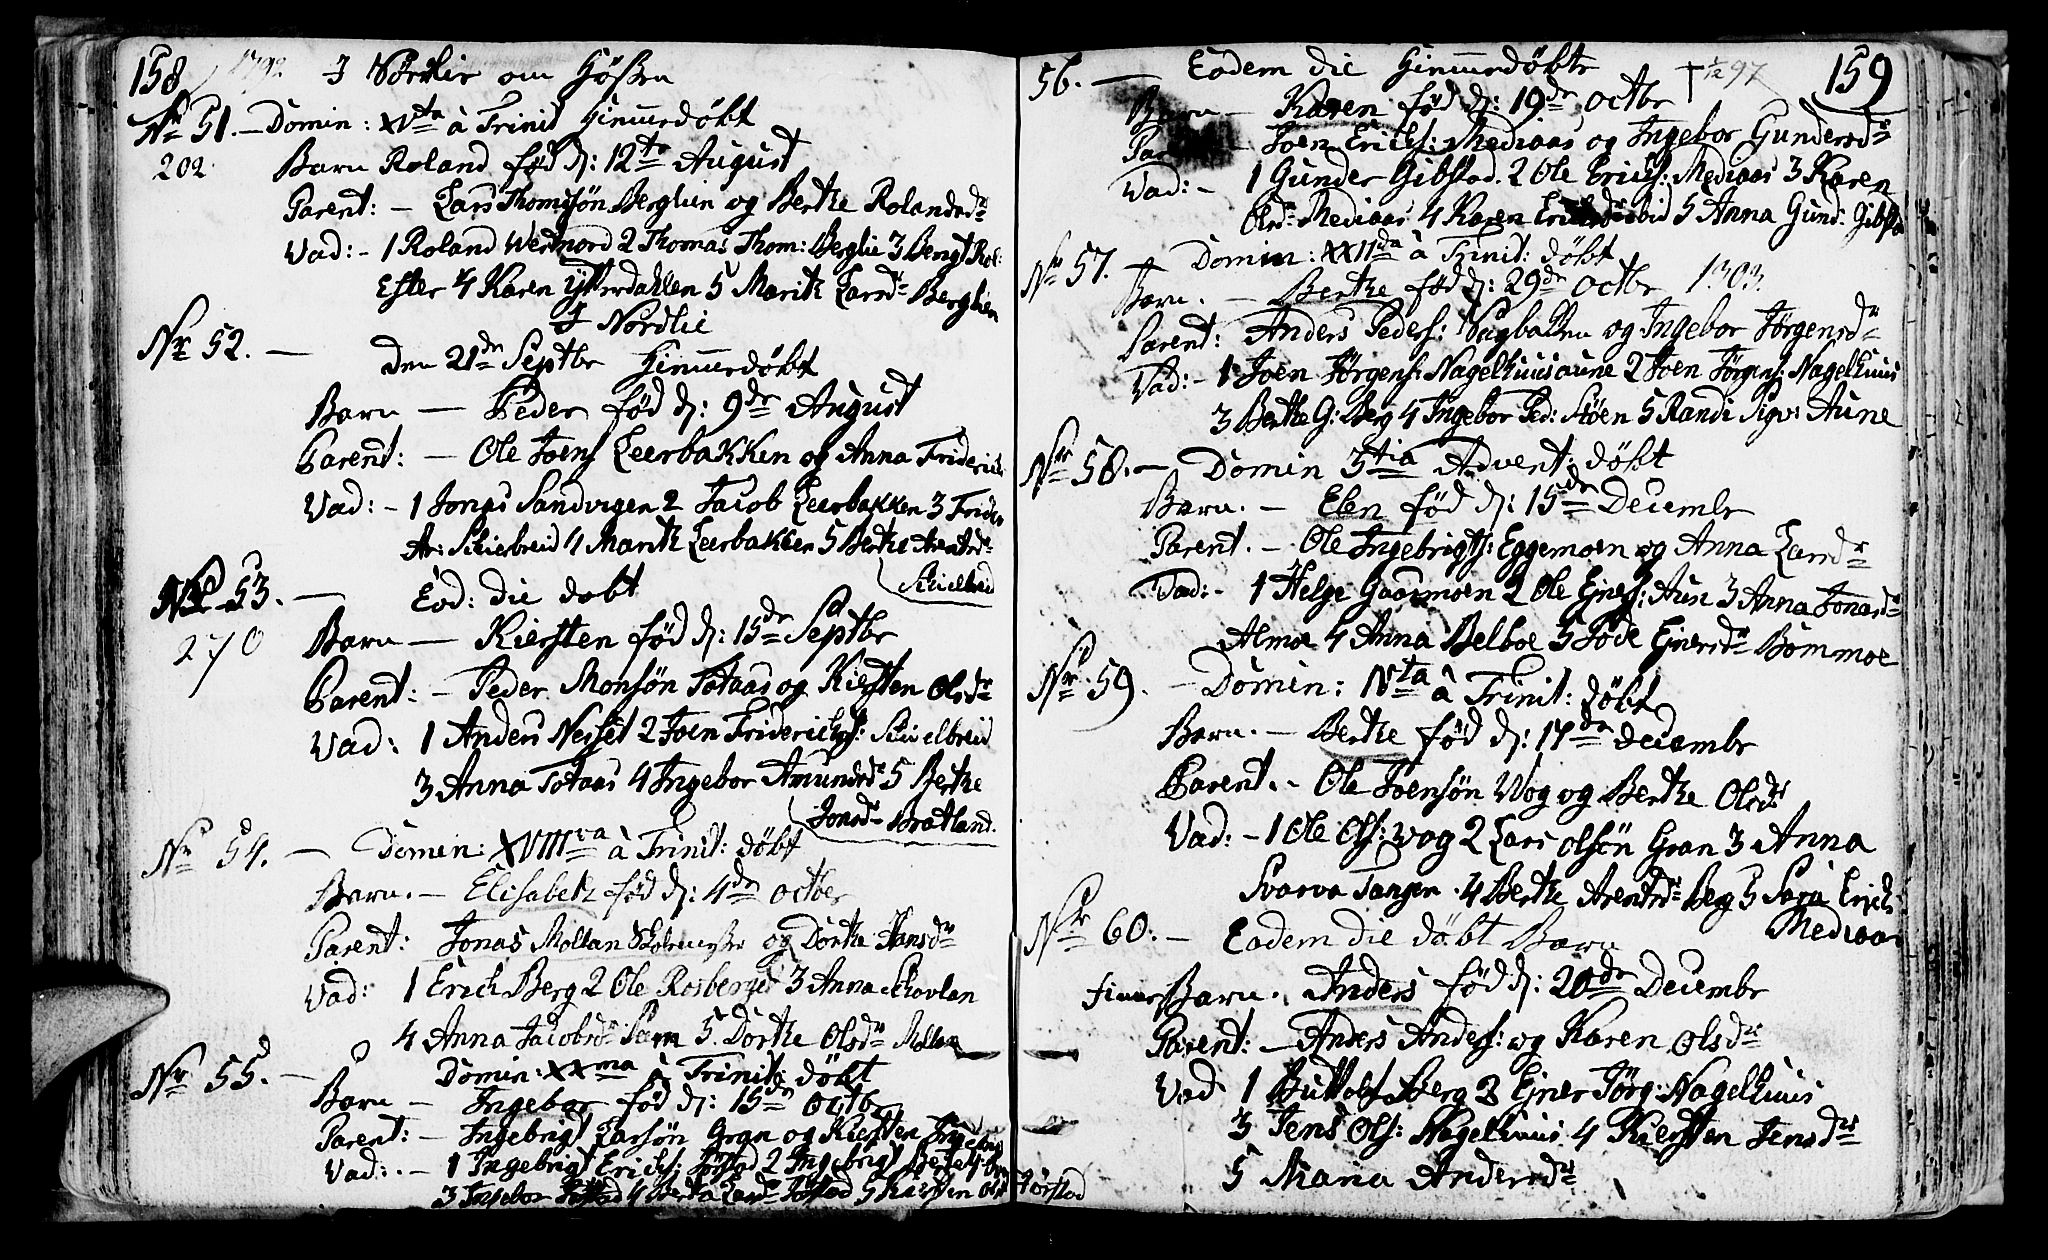 158 1792 I Nordlie om Hösten
Nr 51. — Domin: XVta à Trinit Hiemmedöbt
202. Barn Roland föd d: 12te August
Parent: — Lars Thomsön Berglien og Berthe Rolandsdr
Vad: - 1 Roland Westnord 2 Thomas Thom: Berglie 3 Bengt Rol:
Ester 4 Karen Ytterdahlen 5 Marith Larsdr Berglien
I Nordlie
Nr 52. — den 21de Septbr Hiemmedöbt
Barn — Peder föd d: 9de August
Parent: — Ole Joens Leerbakken og Anna Friderichs
Vad: - 1 Jonas Sandvigen 2 Jacob Leerbakken 3 Frider
Ar: Skielbreid 4 Marith Leerbakken 5 Berthe Arentsdr
Skielbreid
Nr 53. — Eod: die döbt
270 Barn — Kiersten föd d: 15de Septbr
Parent: — Peder Monsön Totaas og Kiersten Olsdr
Vad: 1 Anders Nesset 2 Joen Friderichs: Skielbreid
3 Anna Totaas 4 Ingebor Amundsdr 5 Berthe
Jonsdr Bratland.
Nr 54. — Domin: XVIIIva à Trinit: döbt
Barn. — Elisabeth föd d: 4de Octber
Parent: Jonas Mollan Skolemester og Dorthe Hansdr
Vad: 1 Erich Berg 2 Ole Rosberget 3 Anna Skovlan
4 Anna Jacobsdr Sarm 5. Dorthe Olsdr Mollan
Nr 55. — Domin: XXma à Trinit: döbt
Barn — Ingebor föd d: 15de Octbr
Parent: — Ingebrigt Larsön Gran og Kiersten
Vad: - 1 Ingebrigt Erichs: Jörstad 2 Ingebrigt
3 Ingebor Jörstad 4 Berta Larsdr Jörstad 5 Kiersten Ols Jörstad
56. — Eodem die Hiemmedöbt † 1/12 97 159
Barn — Karen föd d: 19de Octbr
Parent — Joen Erichs: Mediaas og Ingebor Gundersdr
Vad: - 1 Gunder Gibstad. 2 Ole Erichs: Mediaas 3 Karen
Olsdr Mediaas 4 Karen Erichsdr ibid 5 Anna Gund: Gibsta
Nr 57. — Domin: XXIIda à Trinit: döbt
Barn. — Berthe föd d: 29de Octbr 1303.
Parent: Anders Peders: Vugbakken og Ingebor Jörgensdr
Vad: - 1 Joen Jörgens: Nagelhuusaune 2 Joen Jörgens: Nagelhuus
3 Berthe G: Berg 4 Ingebor Ped: Moen 5 Randi Sigv: Aune
Nr 58. — Domin 3tia Advent: döbt
Barn. — Elen föd d: 15de Decembr
Parent. — Ole Ingebrigts: Eggemoen og Anna Larsdr
Vad: - 1 Helge Gaasmoen 2 Ole Ejners: Aun 3 Anna Jonasdr
Almoe 4 Anna Belboe 5 Göde Ejnersdr Bömmoe
Nr 59. — Domin: IVta à Trinit: döbt
Barn. — Berthe föd d: 17de decembr
Parent. - Ole Joensön Wog og Berthe Olsdr
Vad: - 1 Ole Ols: Wog 2 Lars Olsön Gran 3 Anna
Svarva Tangen. 4 Berthe Arentsdr Berg 5 Sara Erichs
Mediaas
Nr 60. — Eodem die döbt Barn
Barn. Anders föd d: 20de Decembr
Parent: — Anders Anders: og Karen Olsdr
Vad 1 Berg 2 Ejner Jörg: Nagelhuus
3 Jens Ols: Nagelhuus 4 Kiersten Jensdr
5 Maria Andersdr